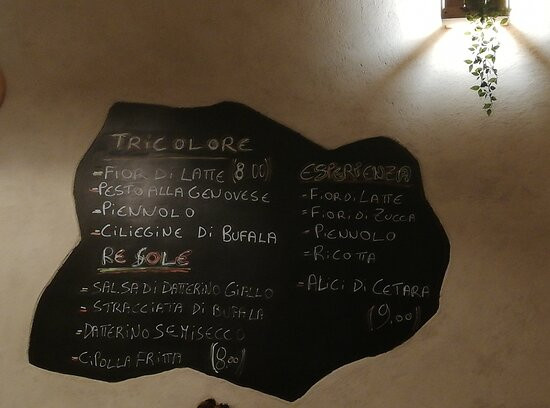 TRICOLORE
-FIOR DI LATTE (8,00)
-PESTO ALLA GENOVESE
-PIENNOLO
-CILIEGINE DI BUFALA
RE SOLE
-SALSA DI DATTERINO GIALLO
-STRACCIATA DI BUFALA
-DATTERINO SEMISECCO
-CIPOLLA FRITTA (8,00)
ESPERIENZA
-FIOR DI LATTE
-FIOR DI ZUCCA
-PIENNOLO
-RICOTTA
-ALICI DI CETARA
(9,00)